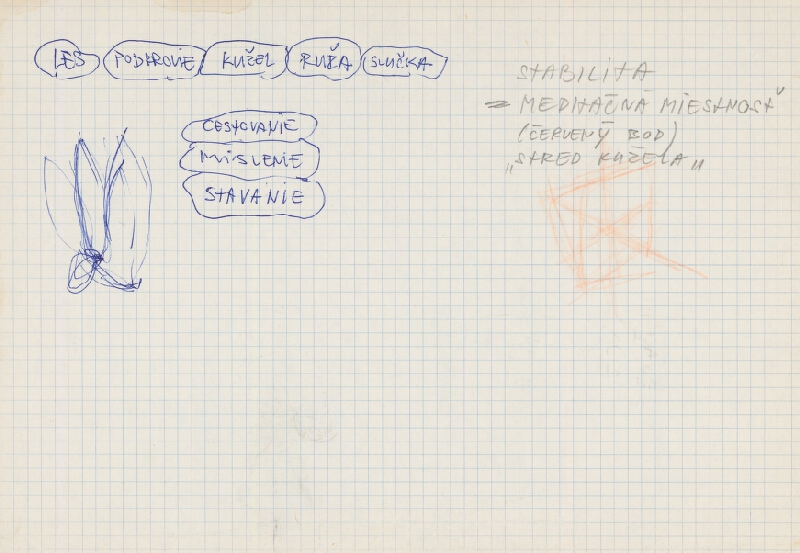 LES PODKROVIE KUŽEL RUŽA SLUČKA
CESTOVANIE
MISLENIE
STAVANIE
STABILITA
= MEDITAČNÁ MIESTNOSŤ
(ČERVENÝ BOD)
„STRED KUŽELA„